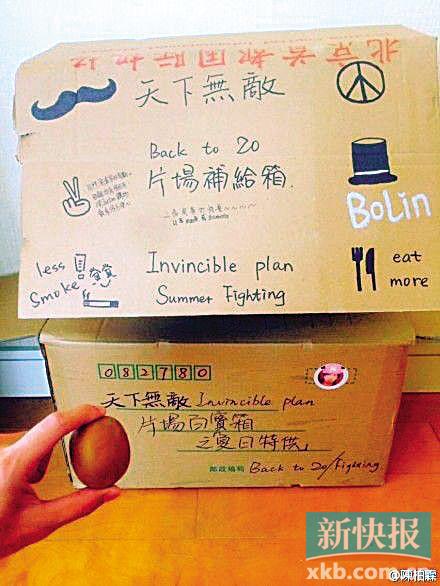 北京首都国际机场
天下無敵
Back to 20
片場補給箱.
BoLin
less
Smoke
Invincible plan
Summer Fighting
eat
more
082780
天下無敵 Invincible plan
片場百寶箱
之夏日特供
邮政编码 Back to 20/Fighting
新快报
xkb.com.cn
@陳柏霖